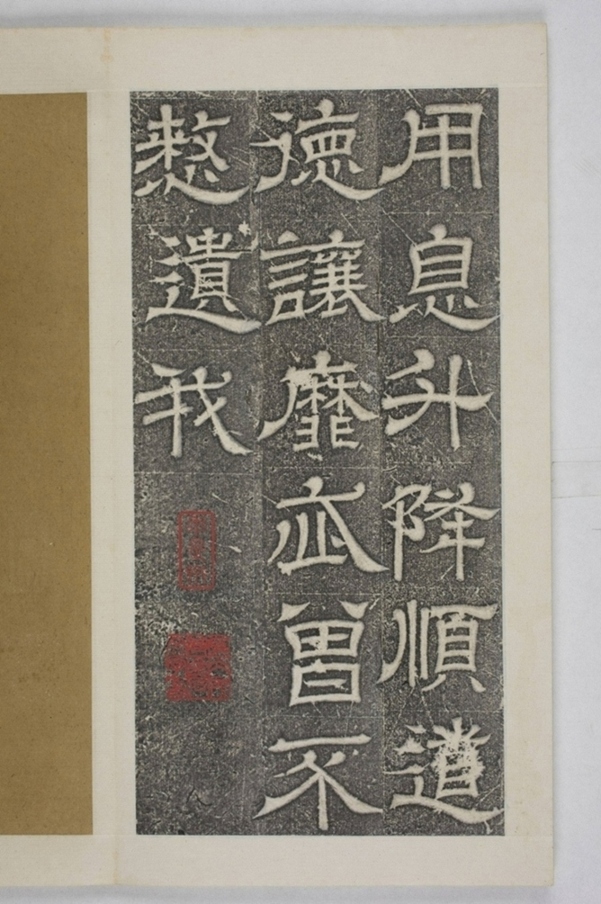 用息升降順道
德讓靡曾不
憗遺我